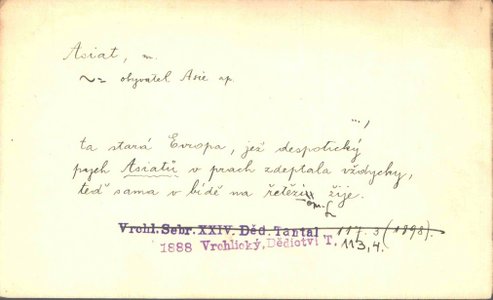 Asiat, m.
~= obyvatel Asie ap.
..., 
ta stará Evropa, jež despotický
pych Asiatů v prach zdeptala vždycky,
teď sama v bídě na řetězi žije.
Vrchl. Sebr. XXIV. Děd. Tantal 117.3 (1898).
1888 Vrchlický, Dědictví T. 113,4.